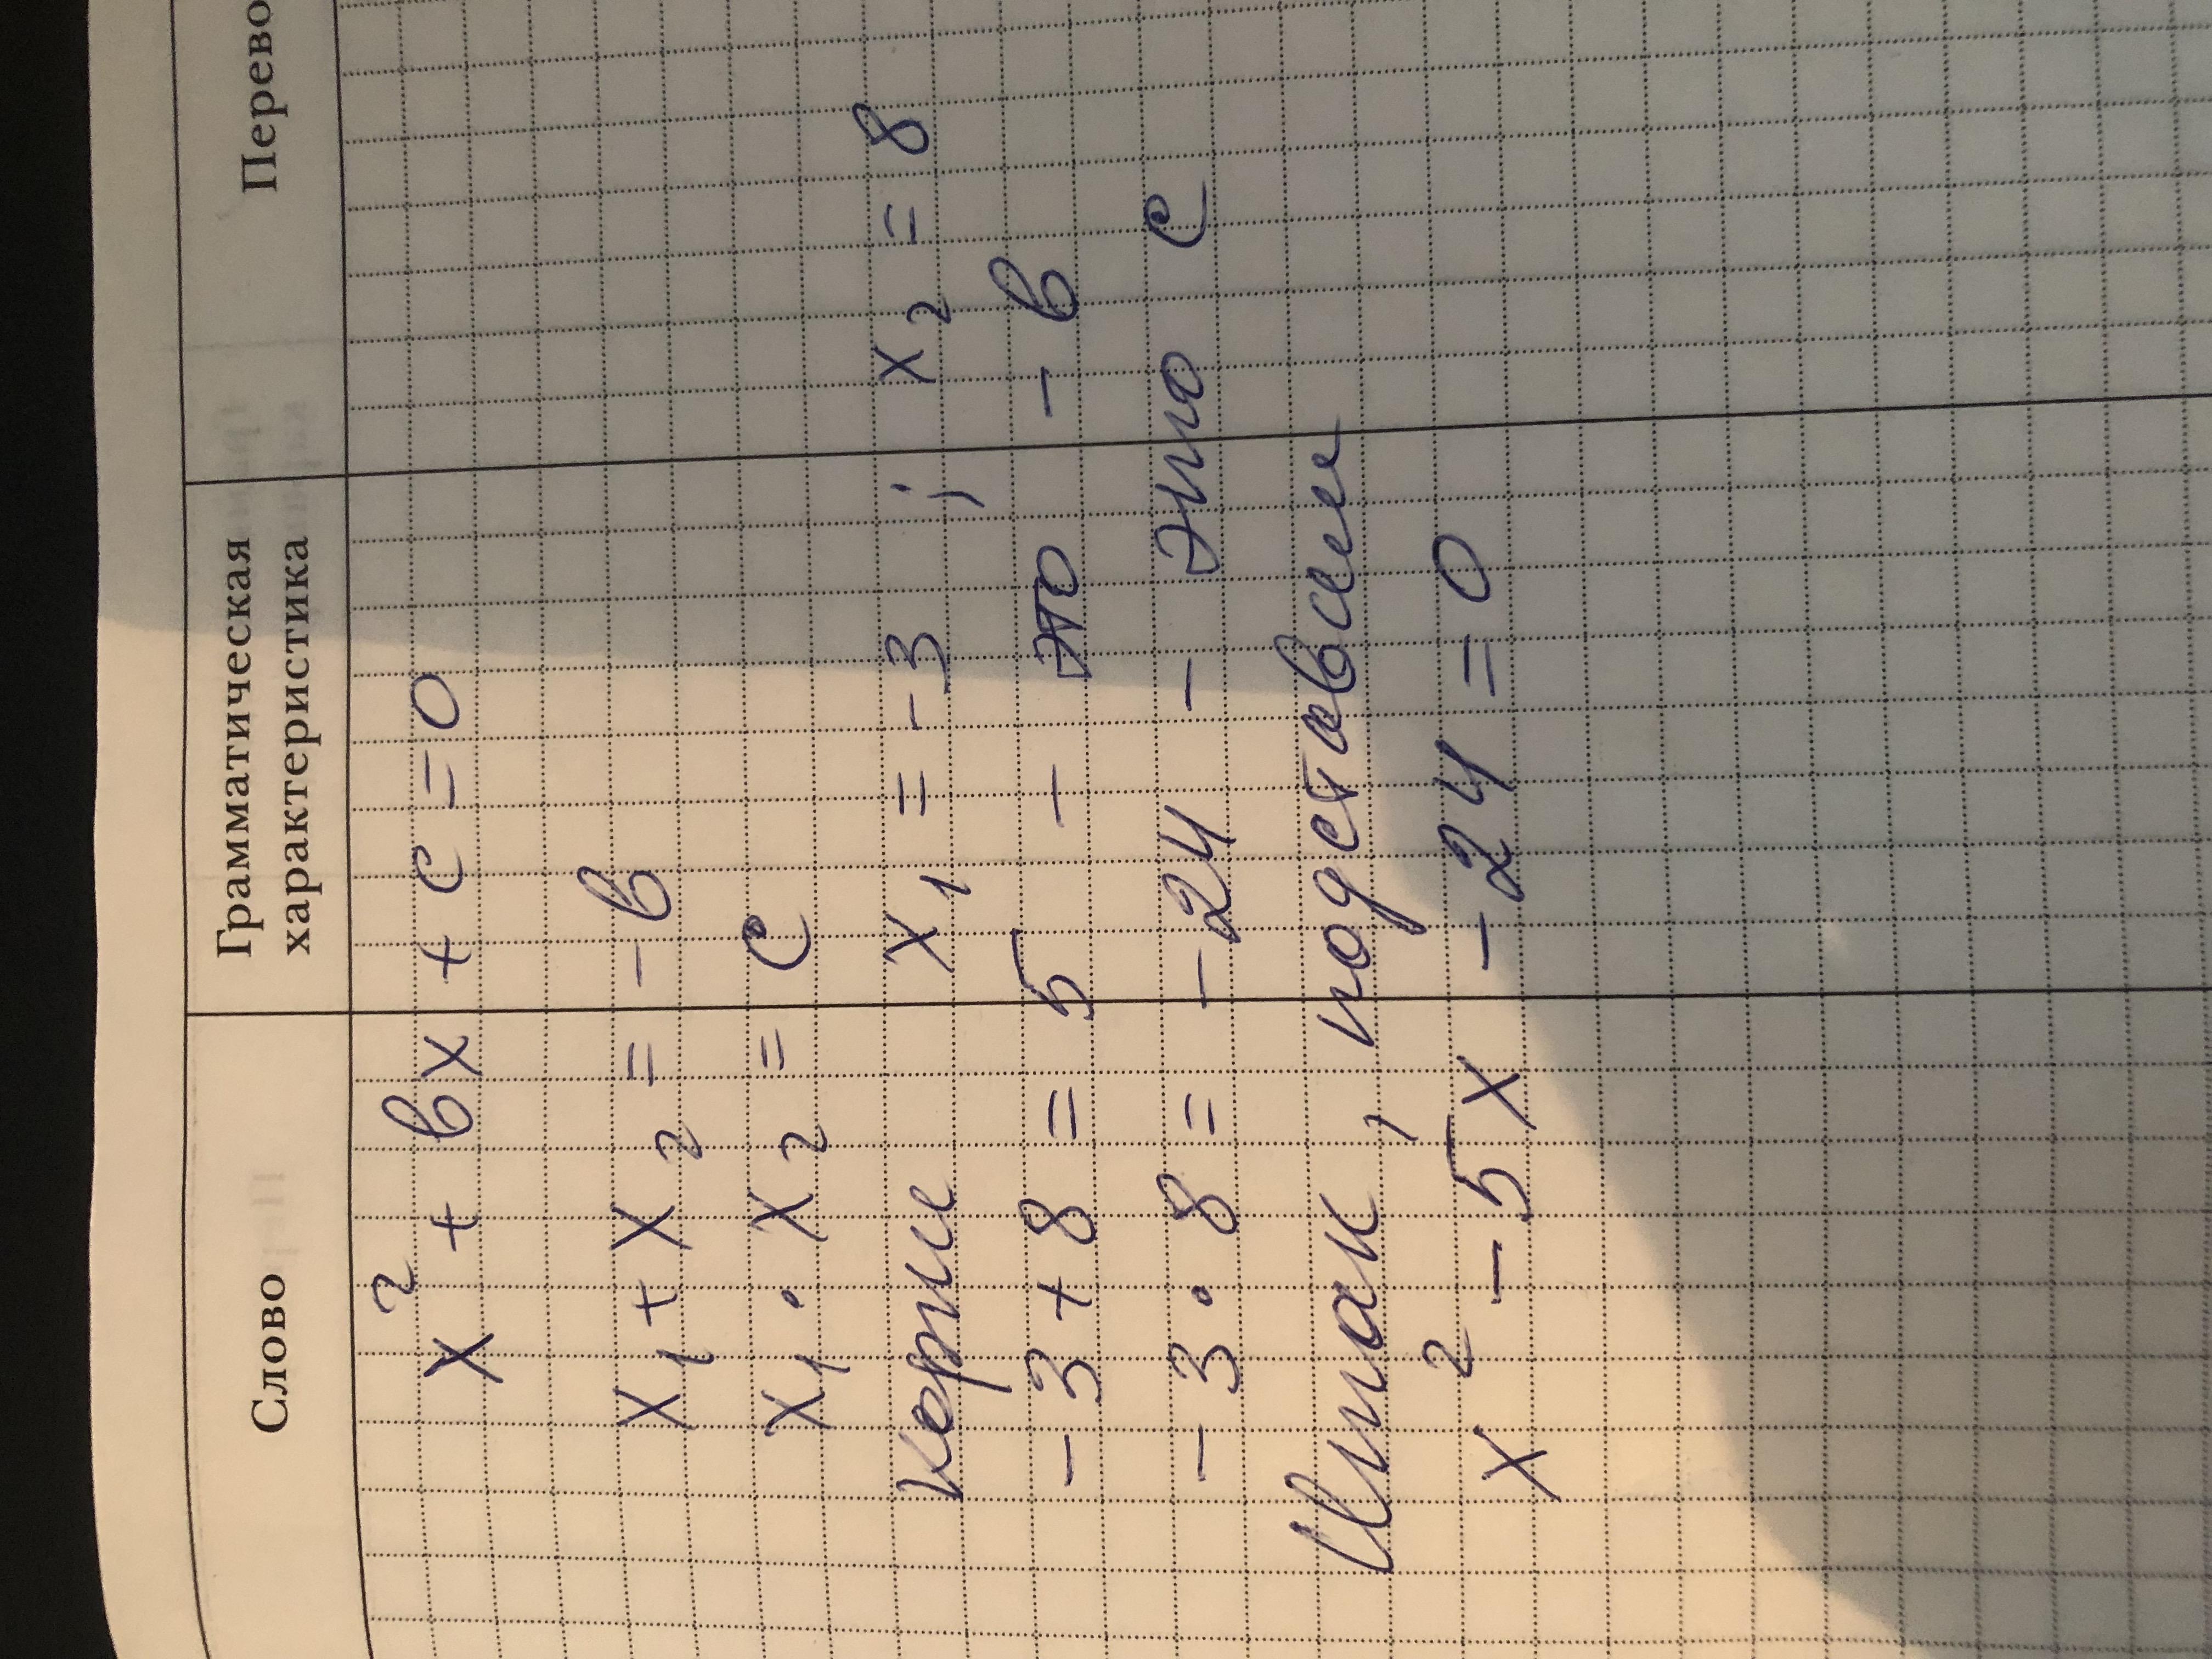 Слово
Грамматическая
характеристика
Перево
x² + bx + c = 0
x₁ + x₂ = -b
x₁ · x₂ = c
корни x₁ = -3 ; x₂ = 8
-3 + 8 = 5 - это - b
-3 · 8 = -24 - это c
Итак, подставляем
x² - 5x - 24 = 0